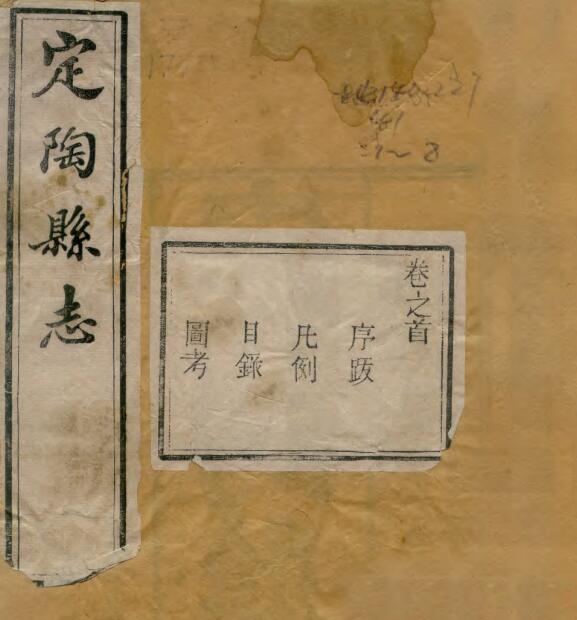 定陶縣志
卷之首
序跋
凡例
目錄
圖考